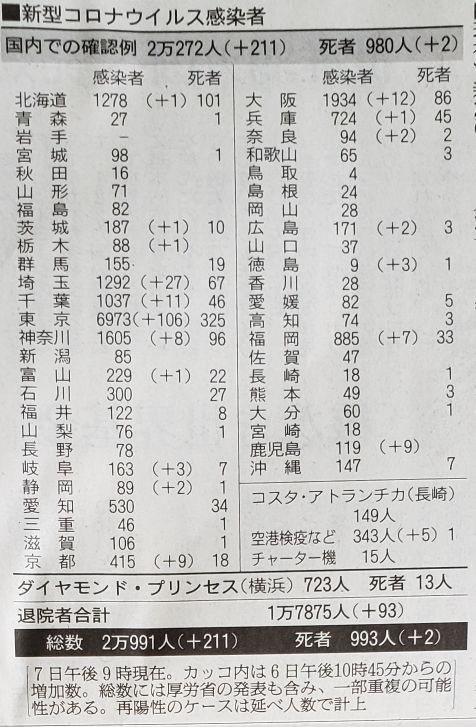 ■新型コロナウイルス感染者
国内での確認例 2万272人(+211) 死者 980人(+2)
感染者 死者
北海道 1278 (+1) 101
青森 27 1
岩手 −
宮城 98 1
秋田 16
山形 71
福島 82
茨城 187 (+1) 10
栃木 88 (+1)
群馬 155 19
埼玉 1292 (+27) 67
千葉 1037 (+11) 46
東京 6973 (+106) 325
神奈川 1605 (+8) 96
新潟 85
富山 229 (+1) 22
石川 300 27
福井 122 8
山梨 76 1
長野 78
岐阜 163 (+3) 7
静岡 89 (+2) 1
愛知 530 34
三重 46 1
滋賀 106 1
京都 415 (+9) 18
感染者 死者
大阪 1934 (+12) 86
兵庫 724 (+1) 45
奈良 94 (+2) 2
和歌山 65 3
鳥取 4
島根 24
岡山 28
広島 171 (+2) 3
山口 37
徳島 9 (+3) 1
香川 28
愛媛 82 5
高知 74 3
福岡 885 (+7) 33
佐賀 47
長崎 18 1
熊本 49 3
大分 60 1
宮崎 18
鹿児島 119 (+9)
沖縄 147 7
コスタ・アトランチカ(長崎)
149人
空港検疫など 343人(+5) 1
チャーター機 15人
ダイヤモンド・プリンセス(横浜) 723人 死者 13人
退院者合計 1万7875人(+93)
総数 2万991人(+211) 死者 993人(+2)
7日午後9時現在。カッコ内は6日午後10時45分からの
増加数。総数には厚労省の発表も含み、一部重複の可能
性がある。再陽性のケースは延べ人数で計上